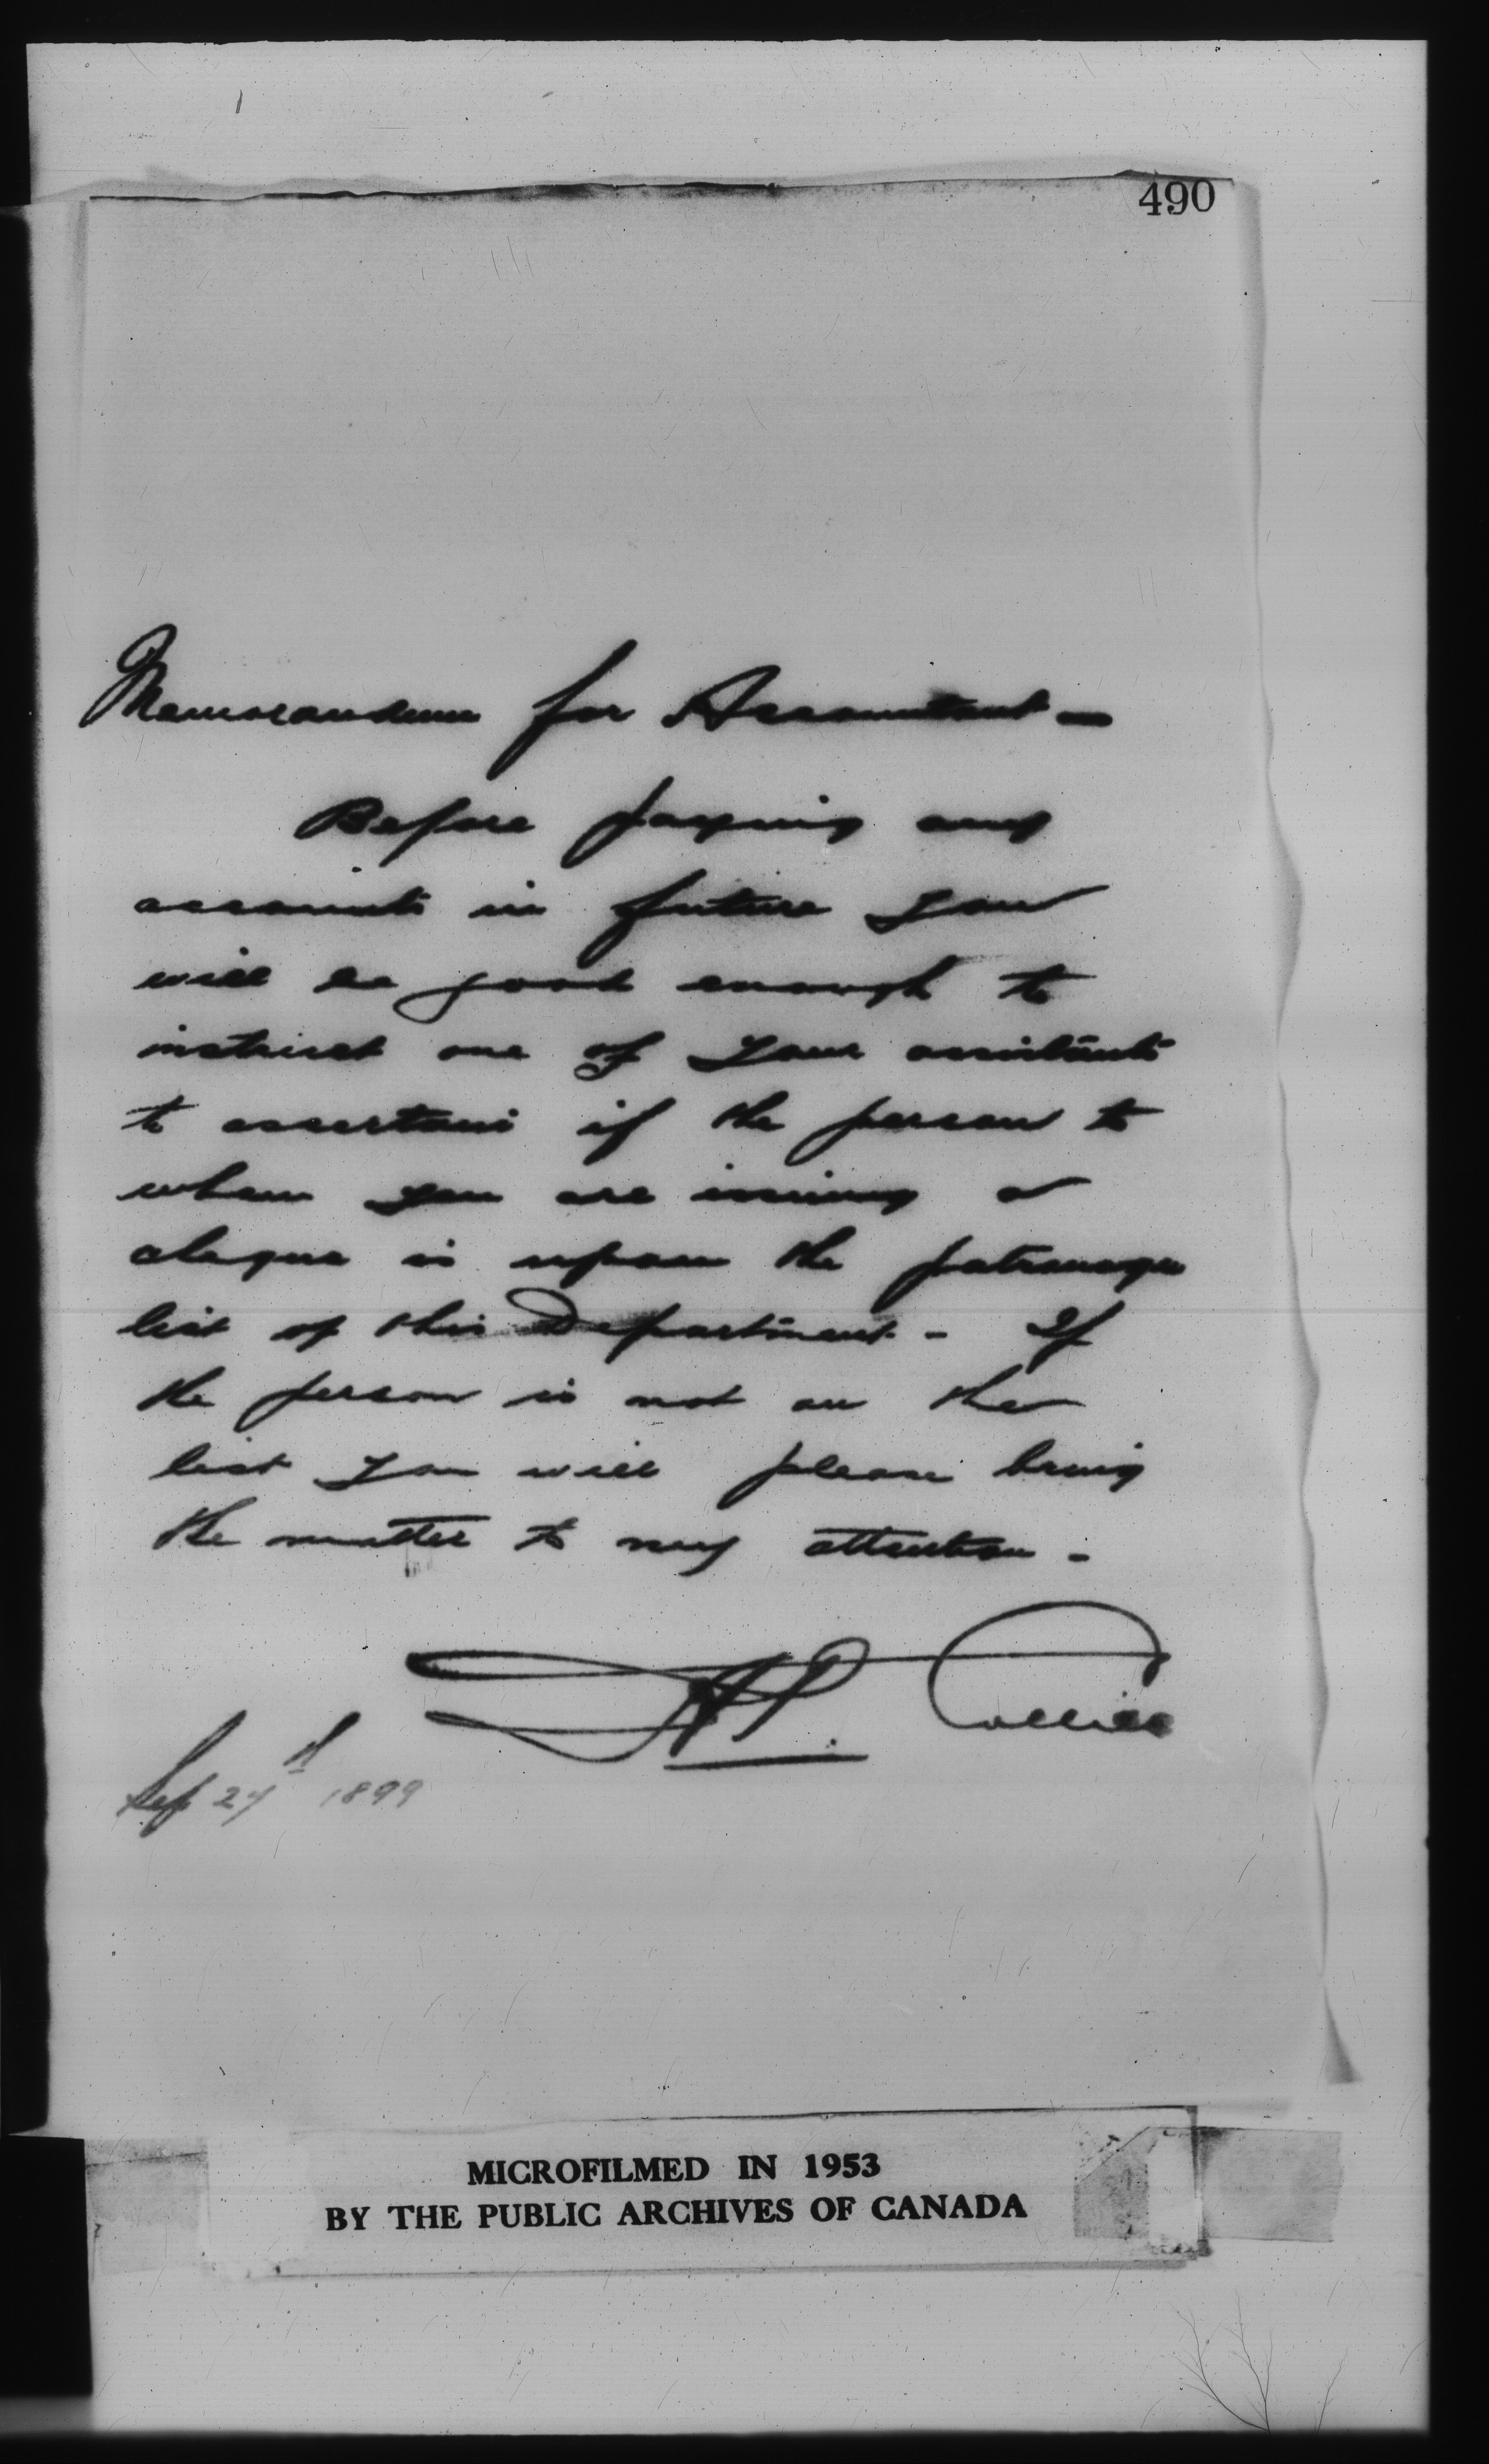 490
Memorandum for Accountant -
Before paying any
accounts in future you
will be good enough to
instruct one of your assistants
to ascertain if the person to
whom you are issuing a
cheque is upon the patronage
list of this Department - If
the person is not on the
list you will please bring
the matter to my attention -
Sep 27 1899
MICROFILMED IN 1953
BY THE PUBLIC ARCHIVES OF CANADA